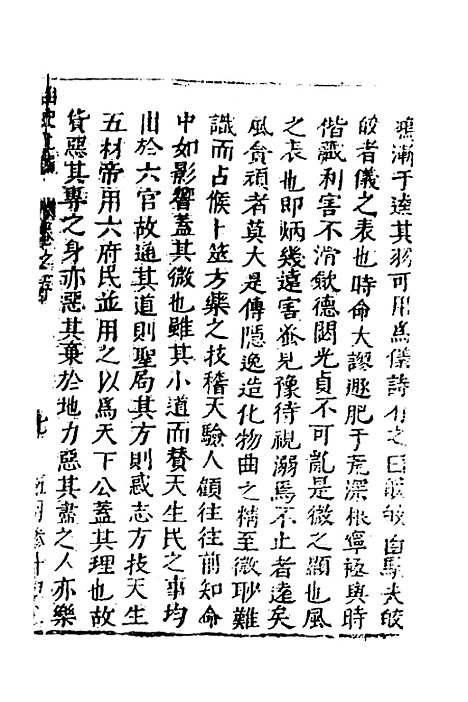 鴻漸于逵其羽可用爲儀詩有之曰皎皎白駒夫皎
皎者儀之表也時命大謬遯肥于荒深根寧極與時
偕藏利害不滑歛德閟光貞不可亂是微之顯也風
之表也即炳幾遠害發見豫待視溺焉不止者逵矣
風貪頑者莫大是傳隱逸造化物曲之精至微耿難
識而占候卜筮方藥之技稽天驗人顧往往前知命
中如影響蓋其微也雖其小道而賛天生民之事均
出於六官故通其道則聖局其方則惑志方技天生
五材帝用六府民並用之以爲天下公蓋其理也故
貨惡其專之身亦惡其棄於地力惡其盡之人亦樂